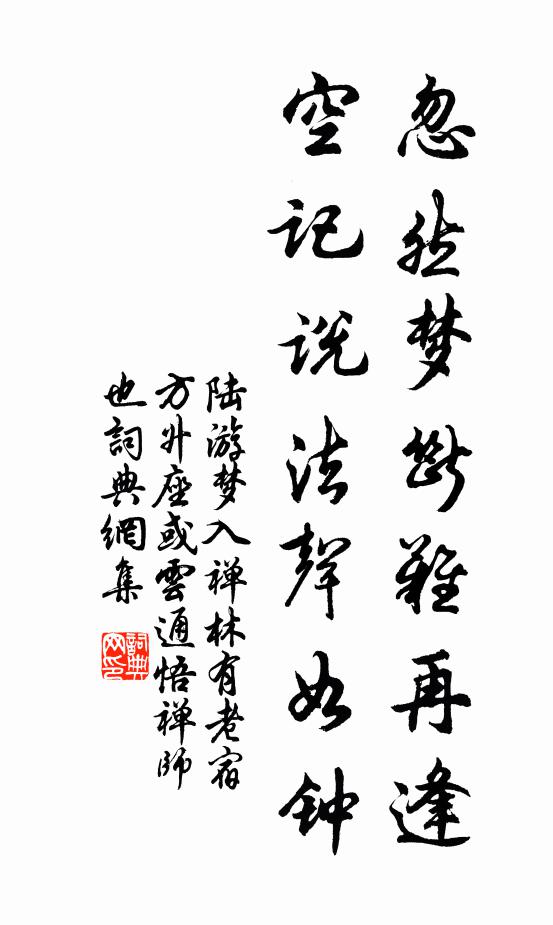 忽然梦断难再逢
空记说法声如钟
陆游梦入禅林有老宿
方外座或云通悟禅师
也词典网集
词典网印